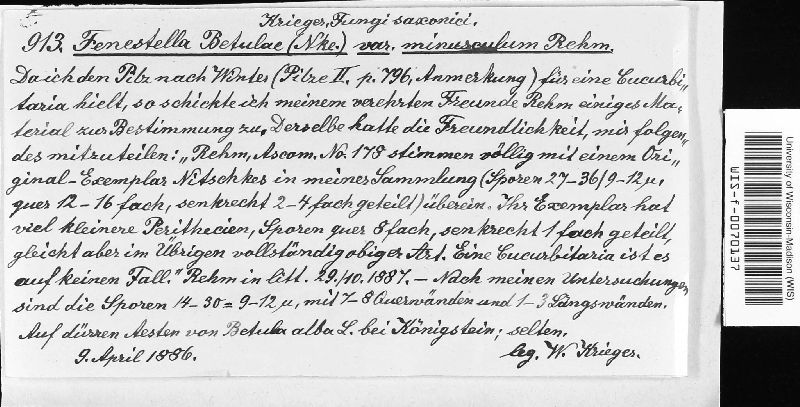 Krieger, Fungi saxonici.
913. Fenestella Betulae (Nke.) var. minusculum Rehm.
Da ich den Pilz nach Winter (Pilze II, p. 796, Anmerkung) für eine Cucurbi„
taria hielt, so schickte ich meinem verehrten Freunde Rehm einiges Ma„
terial zur Bestimmung zu. Derselbe hatte die Freundlichkeit, mir folgen„
des mitzuteilen: „Rehm, Ascom. No. 178 stimmen völlig mit einem Ori„
ginal-Exemplar Nitschkes in meiner Sammlung (Sporen 27-36/9-12µ,
quer 12-16 fach, senkrecht 2-4 fach geteilt) überein. Ihr Exemplar hat
viel kleinere Perithecien, Sporen quer 8 fach, senkrecht 1 fach geteilt,
gleicht aber im Übrigen vollständig obiger Art. Eine Cucurbitaria ist es
auf keinen Fall." Rehm in litt. 29./10. 1887. — Nach meinen Untersuchungen
sind die Sporen 14-30 = 9-12µ, mit 7-8 Querwänden und 1-3 Längswänden.
Auf dürren Aesten von Betula alba L. bei Königstein; selten.
9. April 1886.
leg. W. Krieger.
University of Wisconsin-Madison (WIS)
WIS-f-0070137